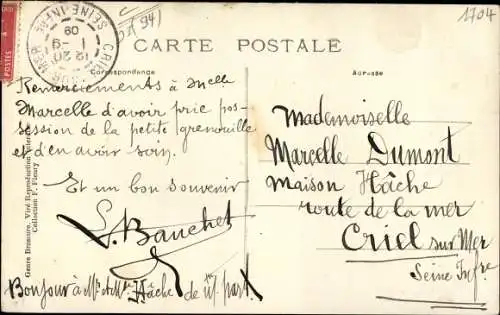 1704
CARTE POSTALE
Correspondance
Adresse
CRIEL SUR MER
SEINE-INFRE
12 20
1 -9
09
POSTES
Remerciements à Melle
Marcelle d'avoir prie pos-
session de la petite grenouille
et d'en avoir soin.
Et un bon souvenir
L. Banchet
Bonjour à Mr et Mme Hâche de part
Mademoiselle
Marcelle Dumont
Maison Hâche
route de la mer
Criel sur Mer
Seine Infre
Collection F. Fleury